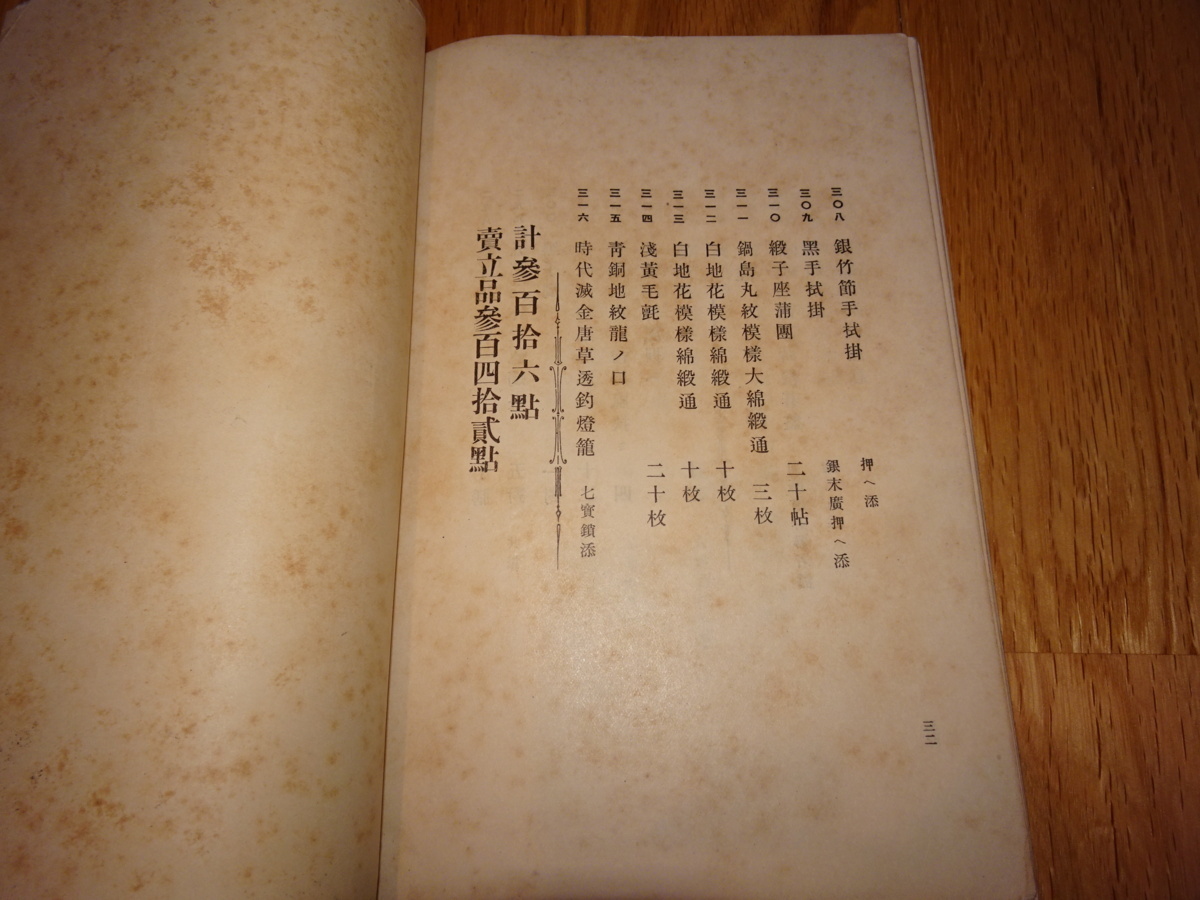 三〇八 銀竹節手拭掛 押ヘ添
三〇九 黑手拭掛 銀末廣押ヘ添
三一〇 緞子座蒲團 二十帖
三一一 鍋島丸紋模樣大綿緞通 三枚
三一二 白地花模樣綿緞通 十枚
三一三 白地花模樣綿緞通 十枚
三一四 淺黃毛氈 二十枚
三一五 靑銅地紋龍ノ口
三一六 時代滅金唐草透釣燈籠 七寶鎖添
計參百拾六點
賣立品參百四拾貳點
三二